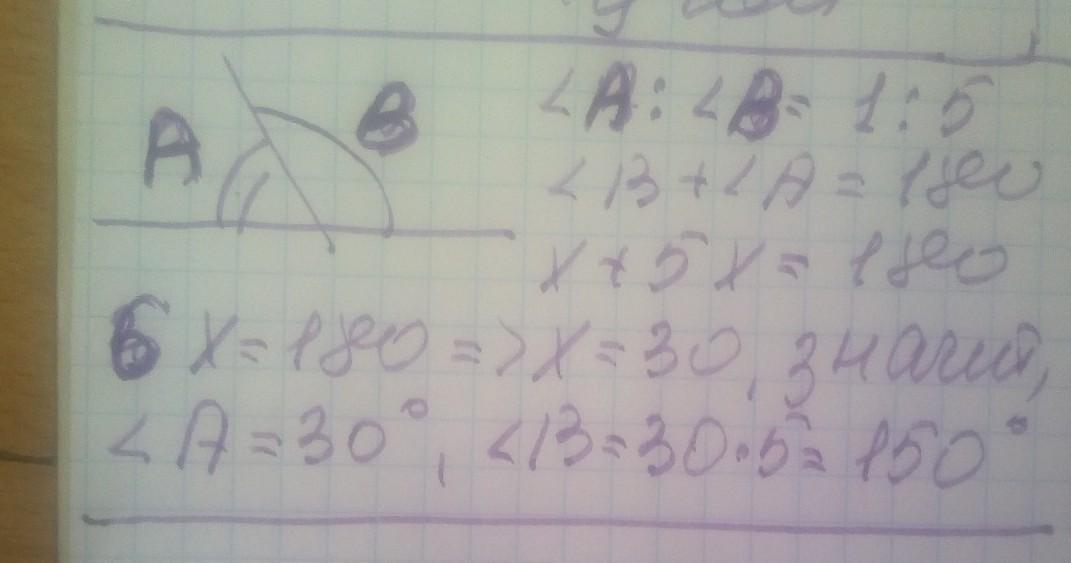 A B
∠A : ∠B = 1 : 5
∠B + ∠A = 180
x + 5x = 180
6x = 180 => x = 30, значит,
∠A = 30°, ∠B = 30·5 = 150°